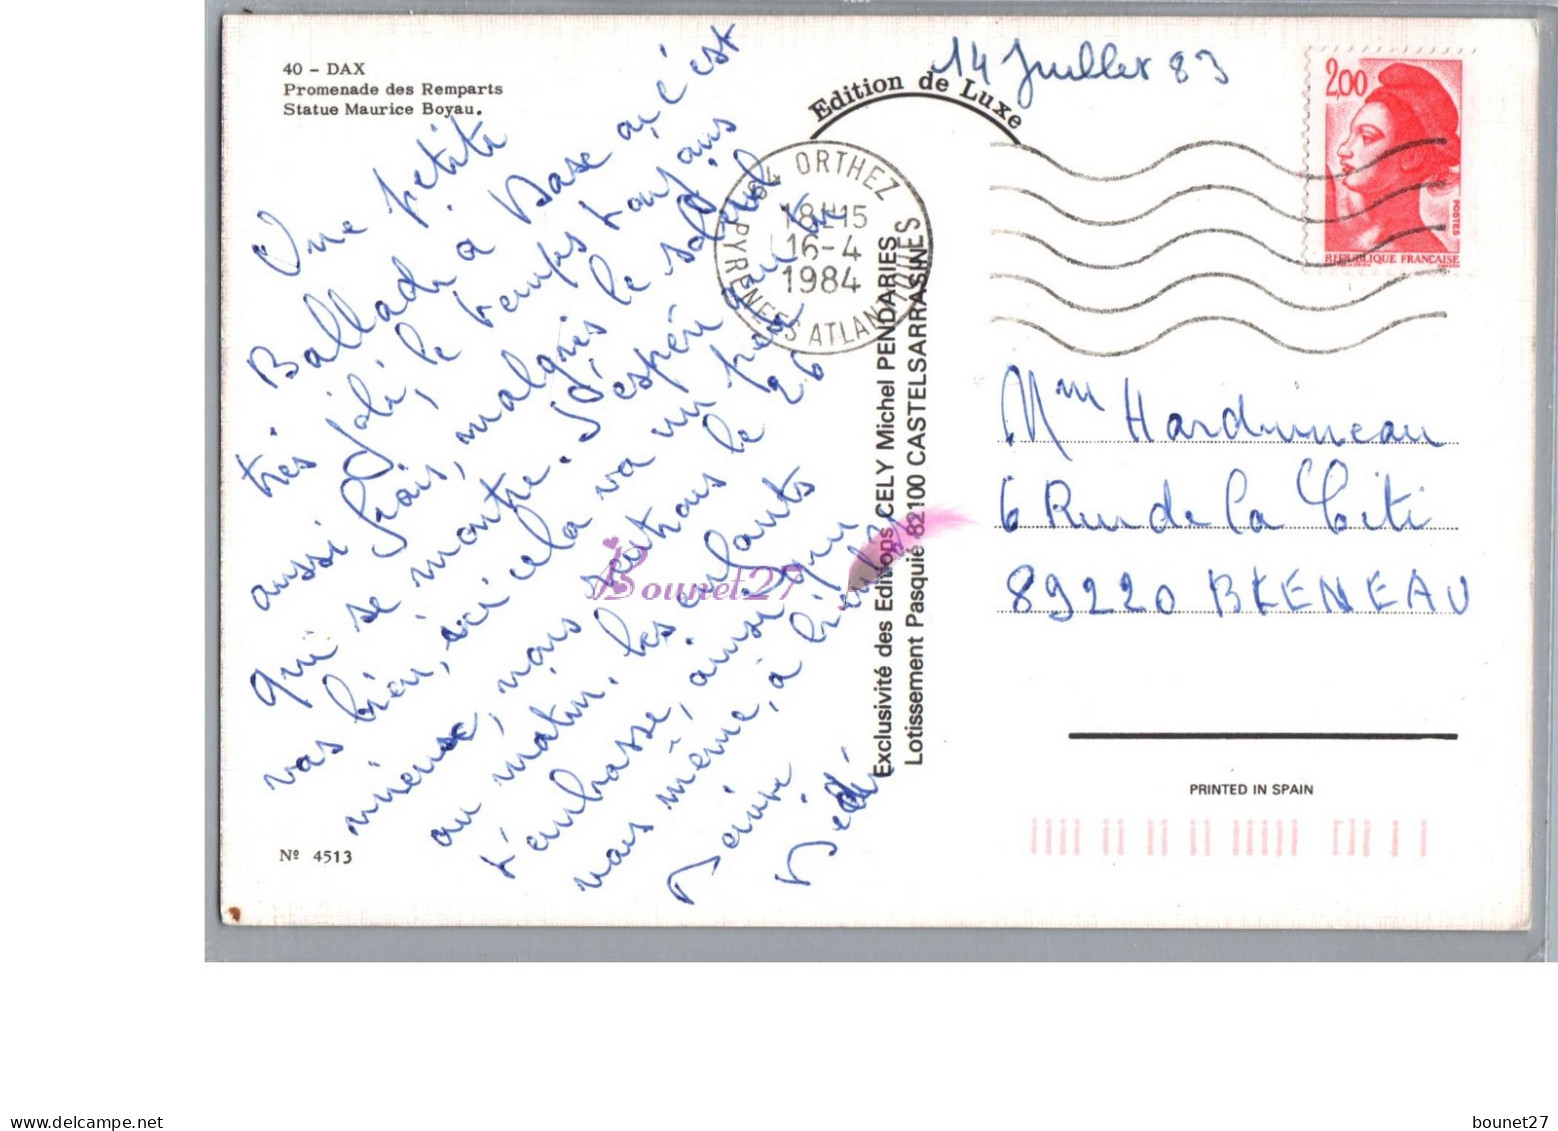 40 - DAX
Promenade des Remparts
Statue Maurice Boyau.
Edition de Luxe
14 Juillet 83
2,00
POSTES
REPUBLIQUE FRANÇAISE
64 ORTHEZ
18H15
16-4
1984
PYRENEES ATLANTIQUES
Une petite
Ballade à Dase où c'est
très joli, le temps toujours
aussi frais, malgrés le soleil
qui se montre. J'espère que tu
vas bien, ici cela va un peu
mieux, nous sentrons le 26
au matin. les enfants
t'embrasse, ainsi que
nous même, à bientôt
Denise
Dédé
Exclusivité des Editions CELY Michel PENDARIES
Lotissement Pasquié 82100 CASTELSARRASIN
Mme Harduineau
6 Rue de la Cité
89220 BLENEAU
PRINTED IN SPAIN
Nº 4513
Bounet27
delcampe.net
bounet27